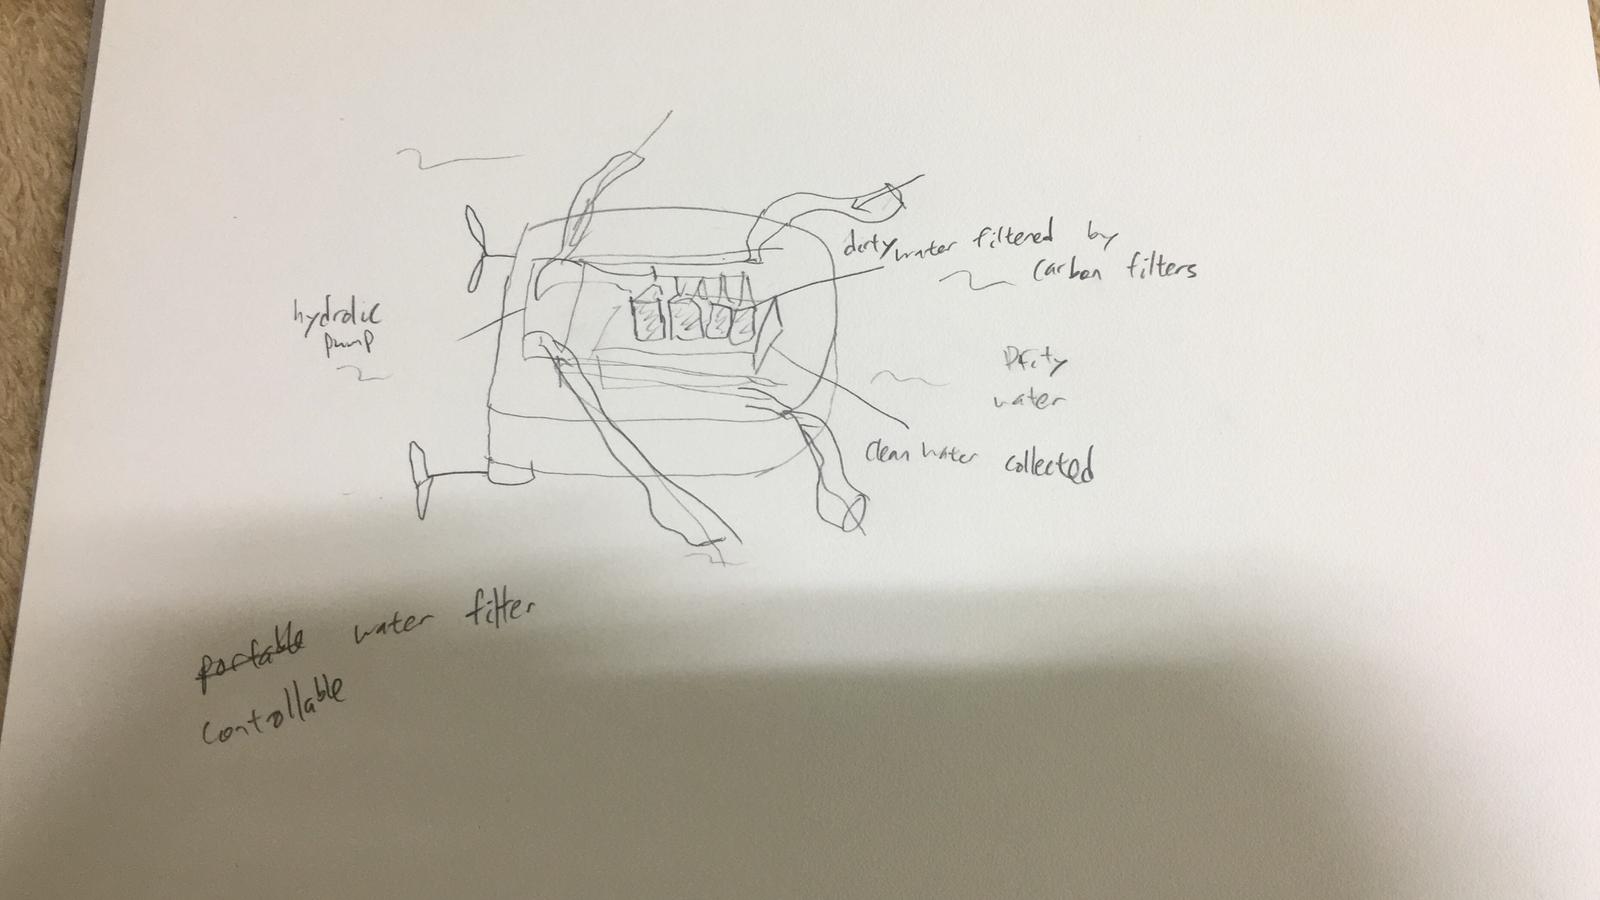 dirty water filtered by
carbon filters
hydrolic
pump
Drity
water
Clean water collected
portable water filter
Controllable